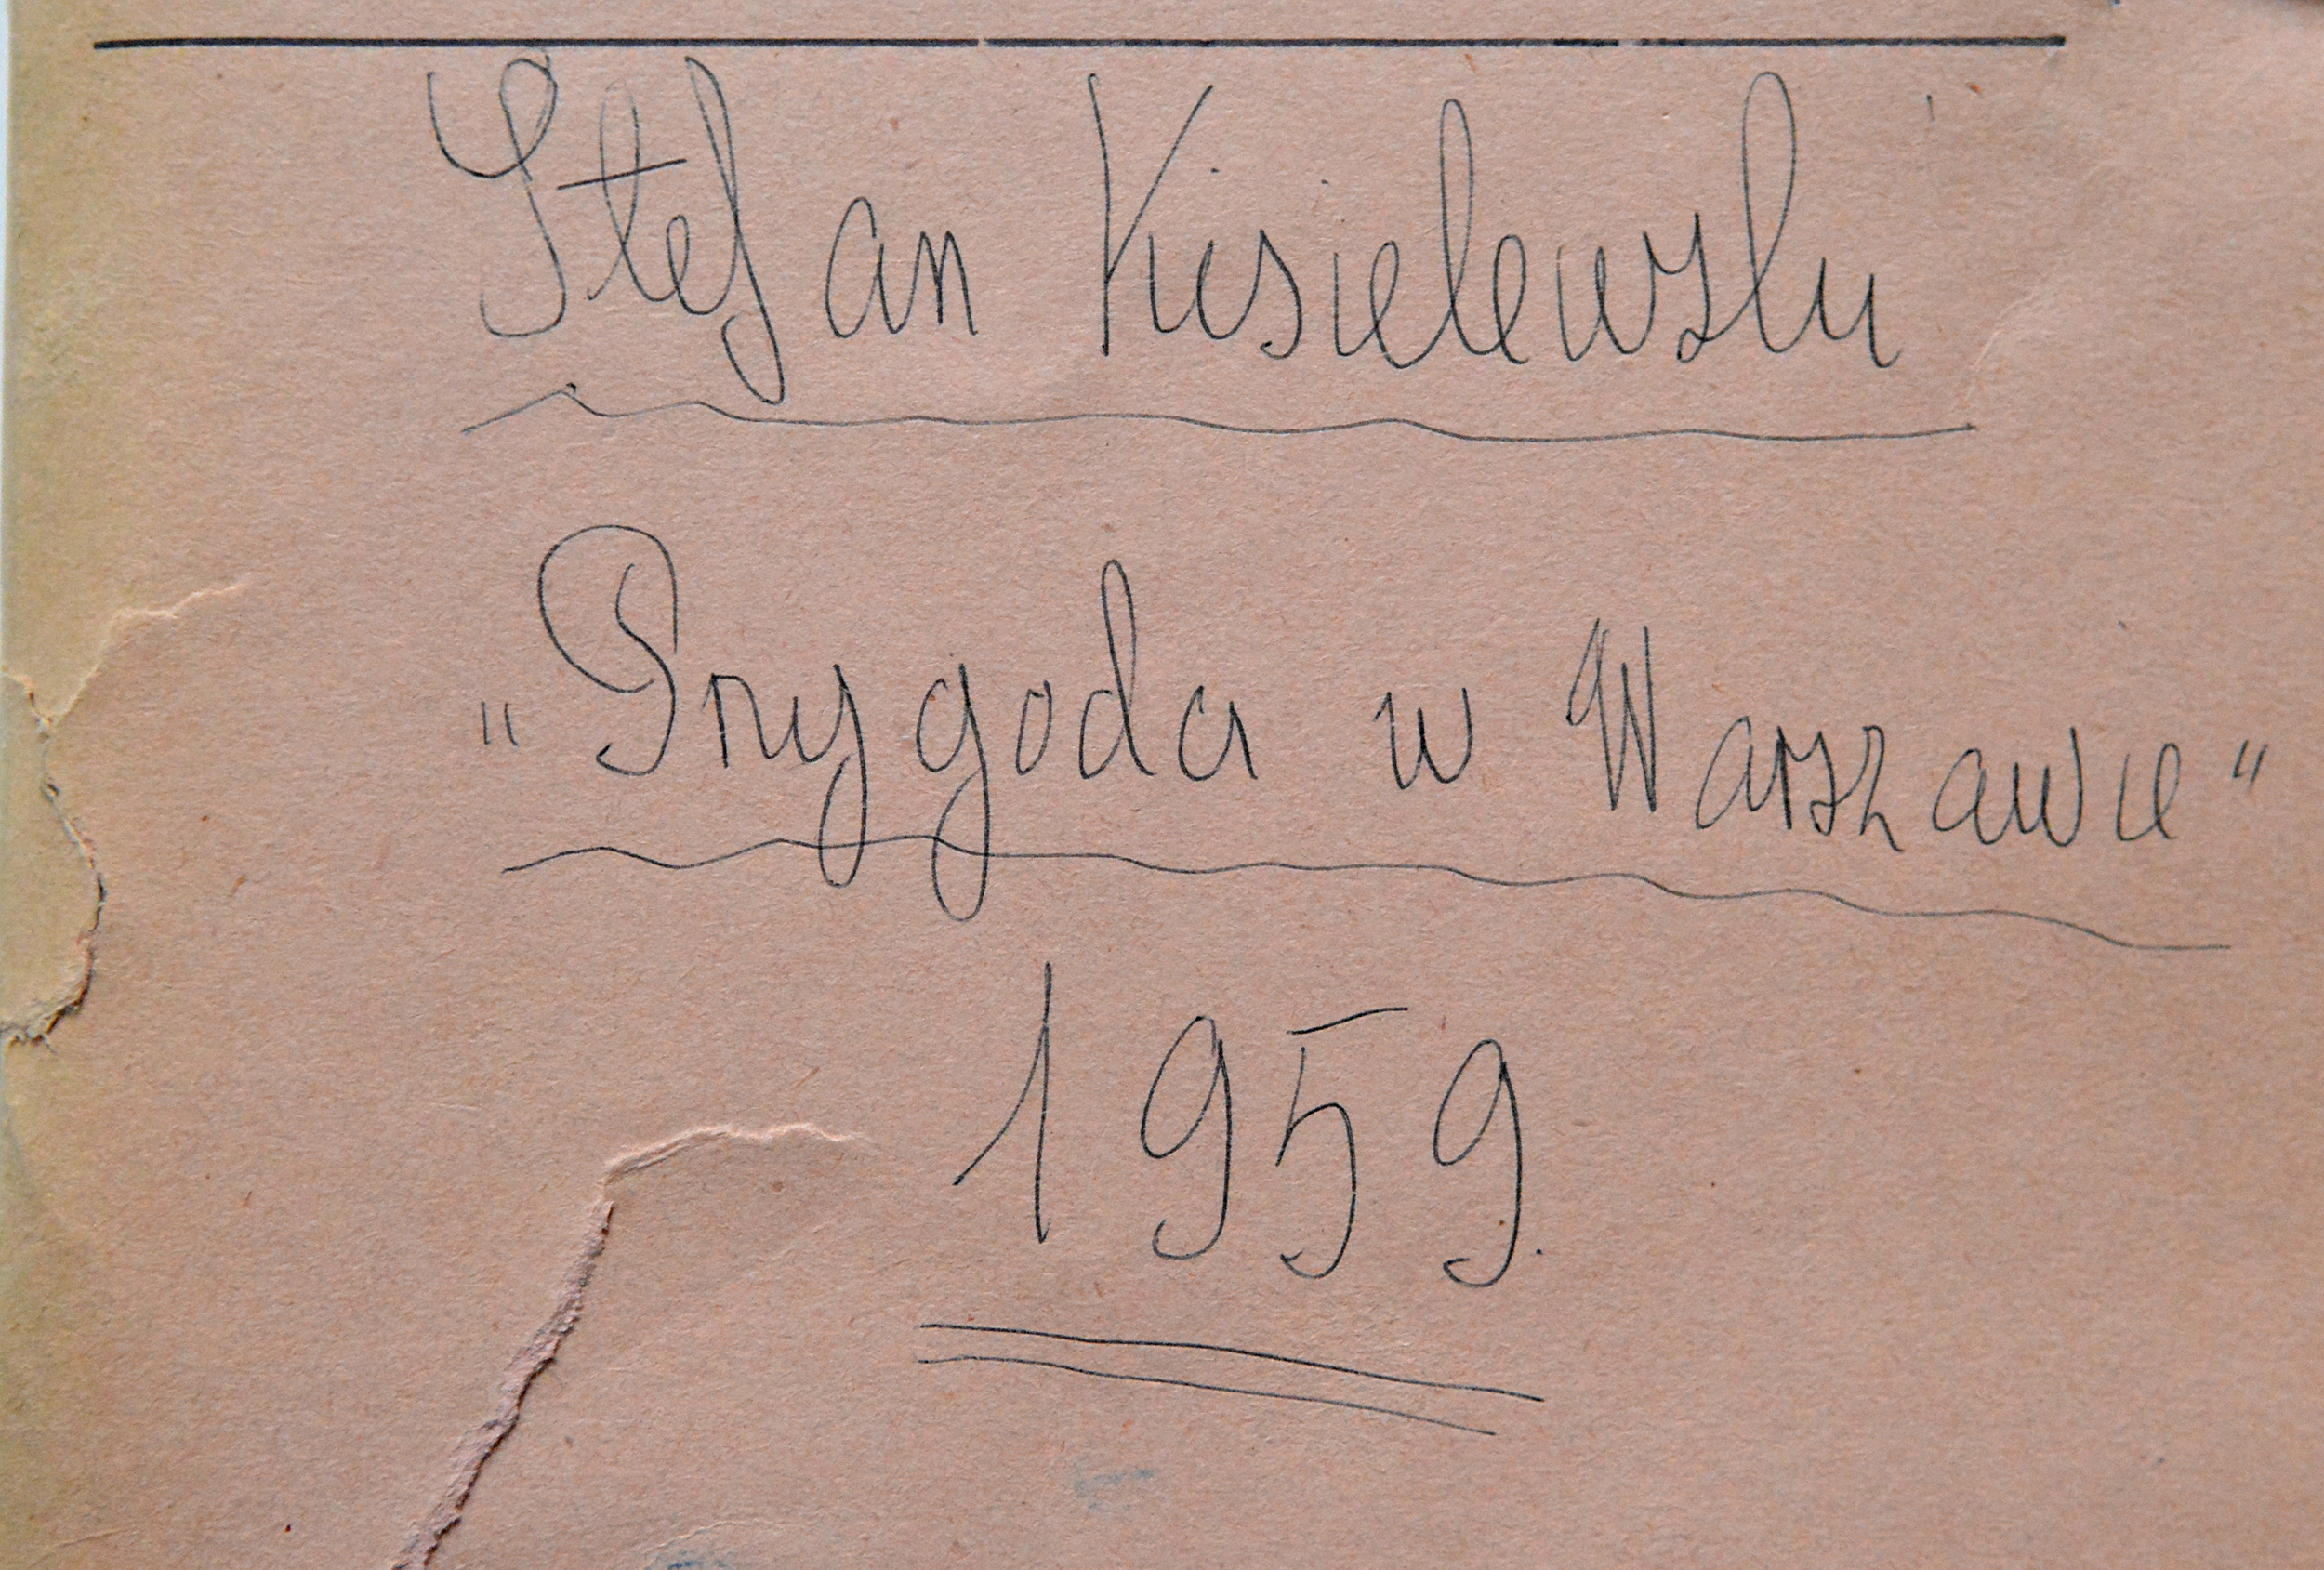 Stefan Kisielewski
„Przygoda w Warszawie"
1959.